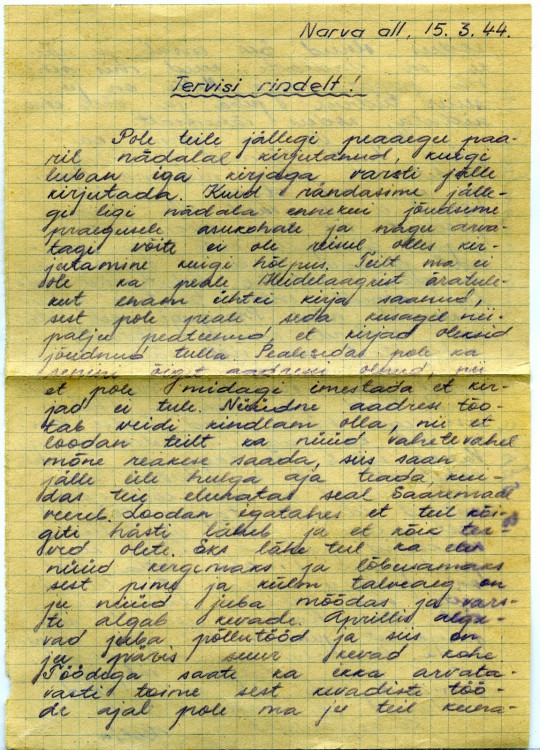 Narva all, 15. 3. 44.
Tervisi rindelt!
Pole teile jällegi peaaegu paa-
ril nädalal kirjutanud, kuigi
luban iga kirjaga varsti jälle
kirjutada. Kuid rändasime jälle-
gi ligi nädala ennekui jõudsime
praegusele asukohale ja nagu arva-
tagi võite ei ole reisul olles kir-
jutamine kuigi hõlpus. Teilt ma ei
ole ka peale Heidelaagrist äratule-
kut enam ühtki kirja saanud,
sest pole peale seda kusagil nii-
palju peatunud, et kirjad oleksid
jõudnud tulla. Pealeseda pole ka
õiget aadressi olnud, nii
et pole midagi imestada et kir-
jad ei tule. Nüüdne aadress töo-
tab veidi kindlam olla, nii et
loodan teilt ka nüüd vahetevahel
mõne reakese saada, siis saan
jälle üle hulga aja teada, kui-
das teie eluratas seal Saaremaal
veereb. Loodan igatahes et teil kõi-
giti hästi läheb ja et kõik ter-
ved olete. Eks lähe teil ka elu
nüüd kergemaks ja lõbusamaks
sest pime ja külm talveaeg on
ju nüüd juba möödas ja vars-
ti algab kevade. Aprillis alga-
vad juba põllutööd ja siis on
ju päris suur kevad kohe.
Töödega saate ka ikka arvata-
vasti toime sest kevadiste töö-
de ajal pole ma ju teil